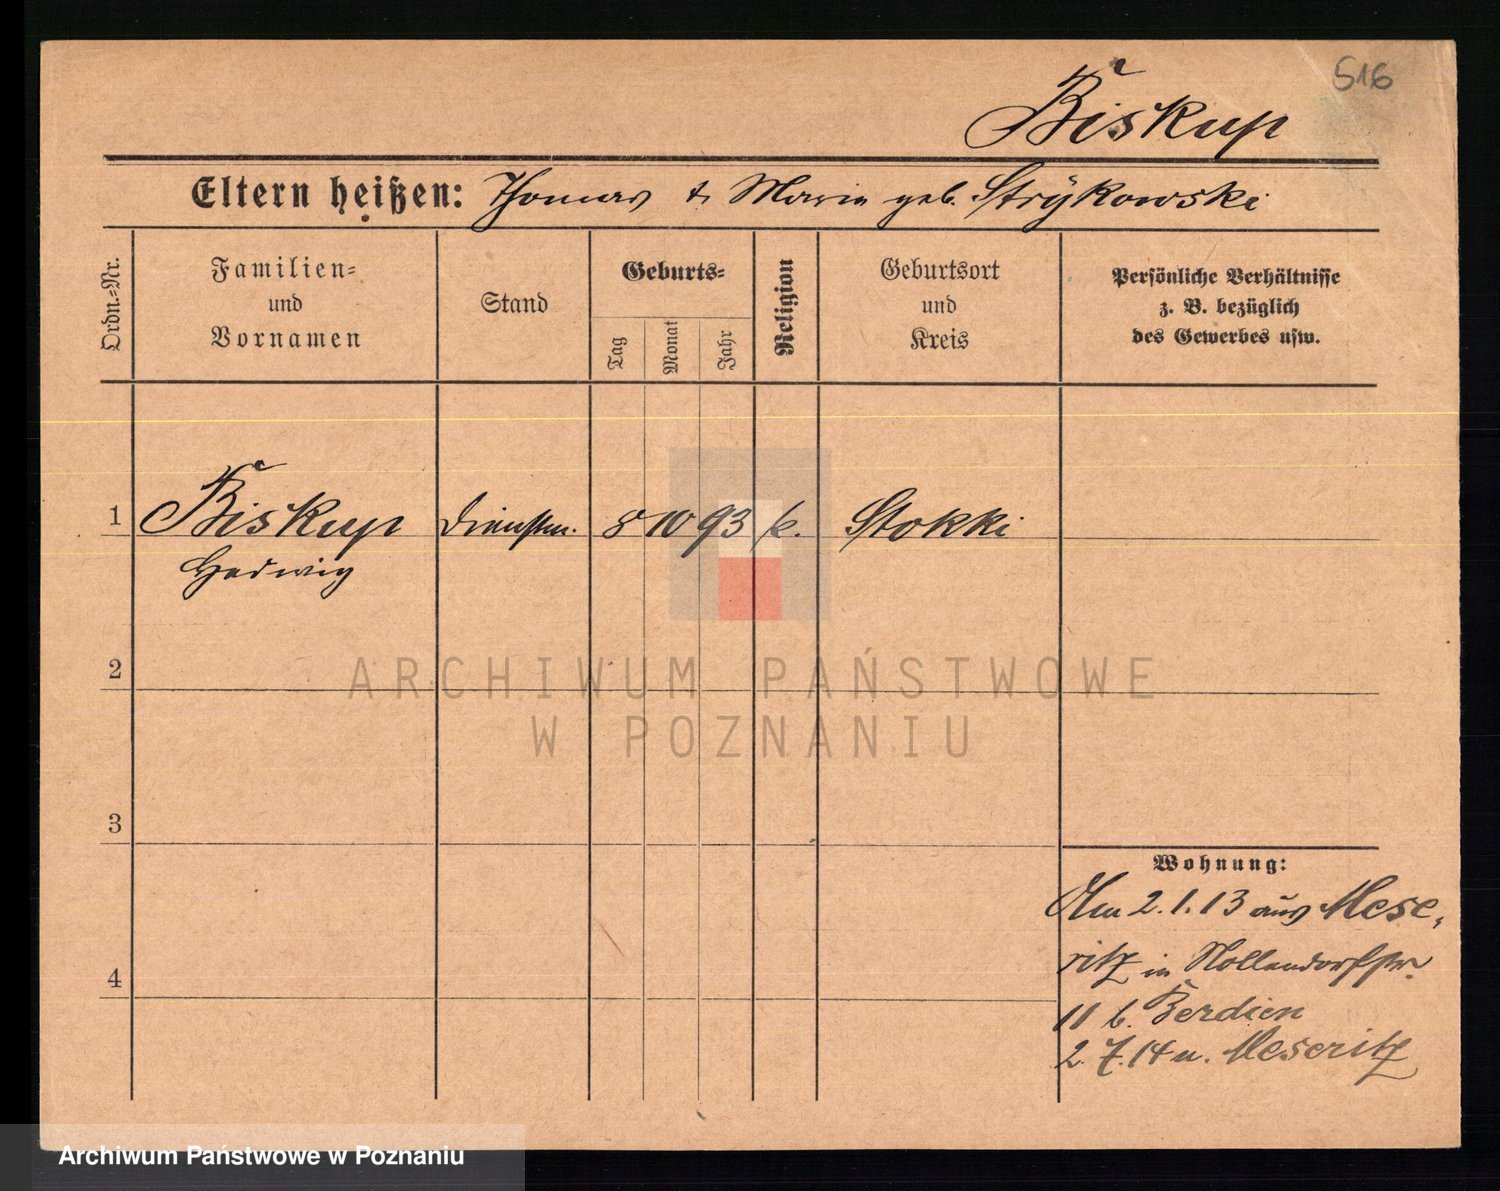 516
Biskup
Eltern heißen: Thomas & Marie geb. Strÿkowski
Ordn.=Nr.
Familien=
und
Vornamen
Stand
Geburts=
Tag
Monat
Jahr
Religion
Geburtsort
und
Kreis
Persönliche Verhältnisse
z. B. bezüglich
des Gewerbes usw.
1 Biskup Dienstm. 8 10 93 k. Stokki
Hedwig
2
3
4
Wohnung:
Am 2.1.13 aus Mese,
ritz in Nollendorfstr.
11 b. Berdien
2.7.14 n. Meseritz
ARCHIWUM PAŃSTWOWE
W POZNANIU
Archiwum Państwowe w Poznaniu